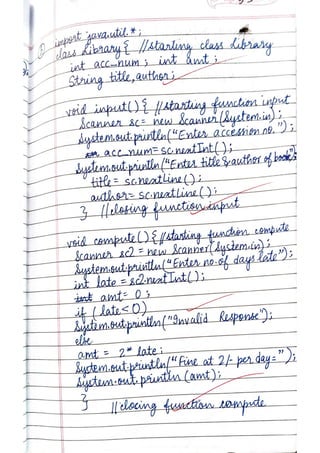 import java.util.*;
class Library{ //starting class Library
int acc_num; int amt;
String title,author;
void input(){ //starting function input
Scanner sc= new Scanner(System.in);
System.out.println("Enter accession no.");
acc_num=sc.nextInt();
System.out.println("Enter title & author of book");
title= sc.nextLine();
author= sc.nextLine();
} //closing function input
void compute(){ //starting function compute
Scanner sc2=new Scanner(System.in);
System.out.println("Enter no. of days late");
int late = sc2.nextInt();
int amt= 0;
if (late<0)
System.out.println("Invalid Response");
else
amt = 2* late;
System.out.println("Fine at 2/- per day=");
System.out.println(amt);
}
//closing function compute